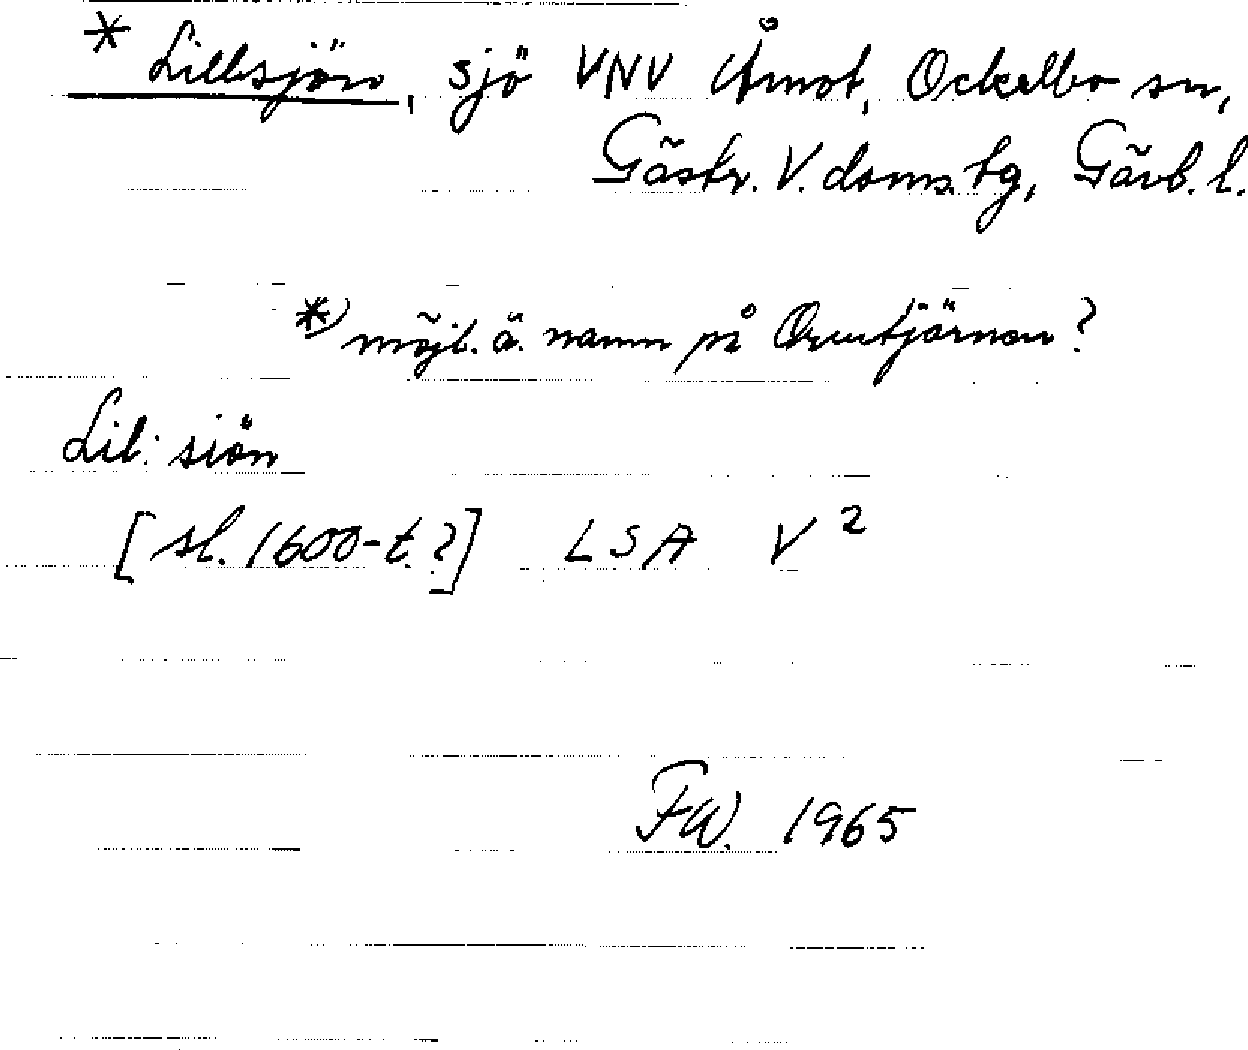 * Lillsjön, sjö VNV Åmot, Ockelbo sn,
Gästr. V. doms.tg, Gävb. l.
*) möjl. ä. namn på Ormtjärnen?
Lil: siön
[sl. 1600-t.?] LSA V²
FW. 1965